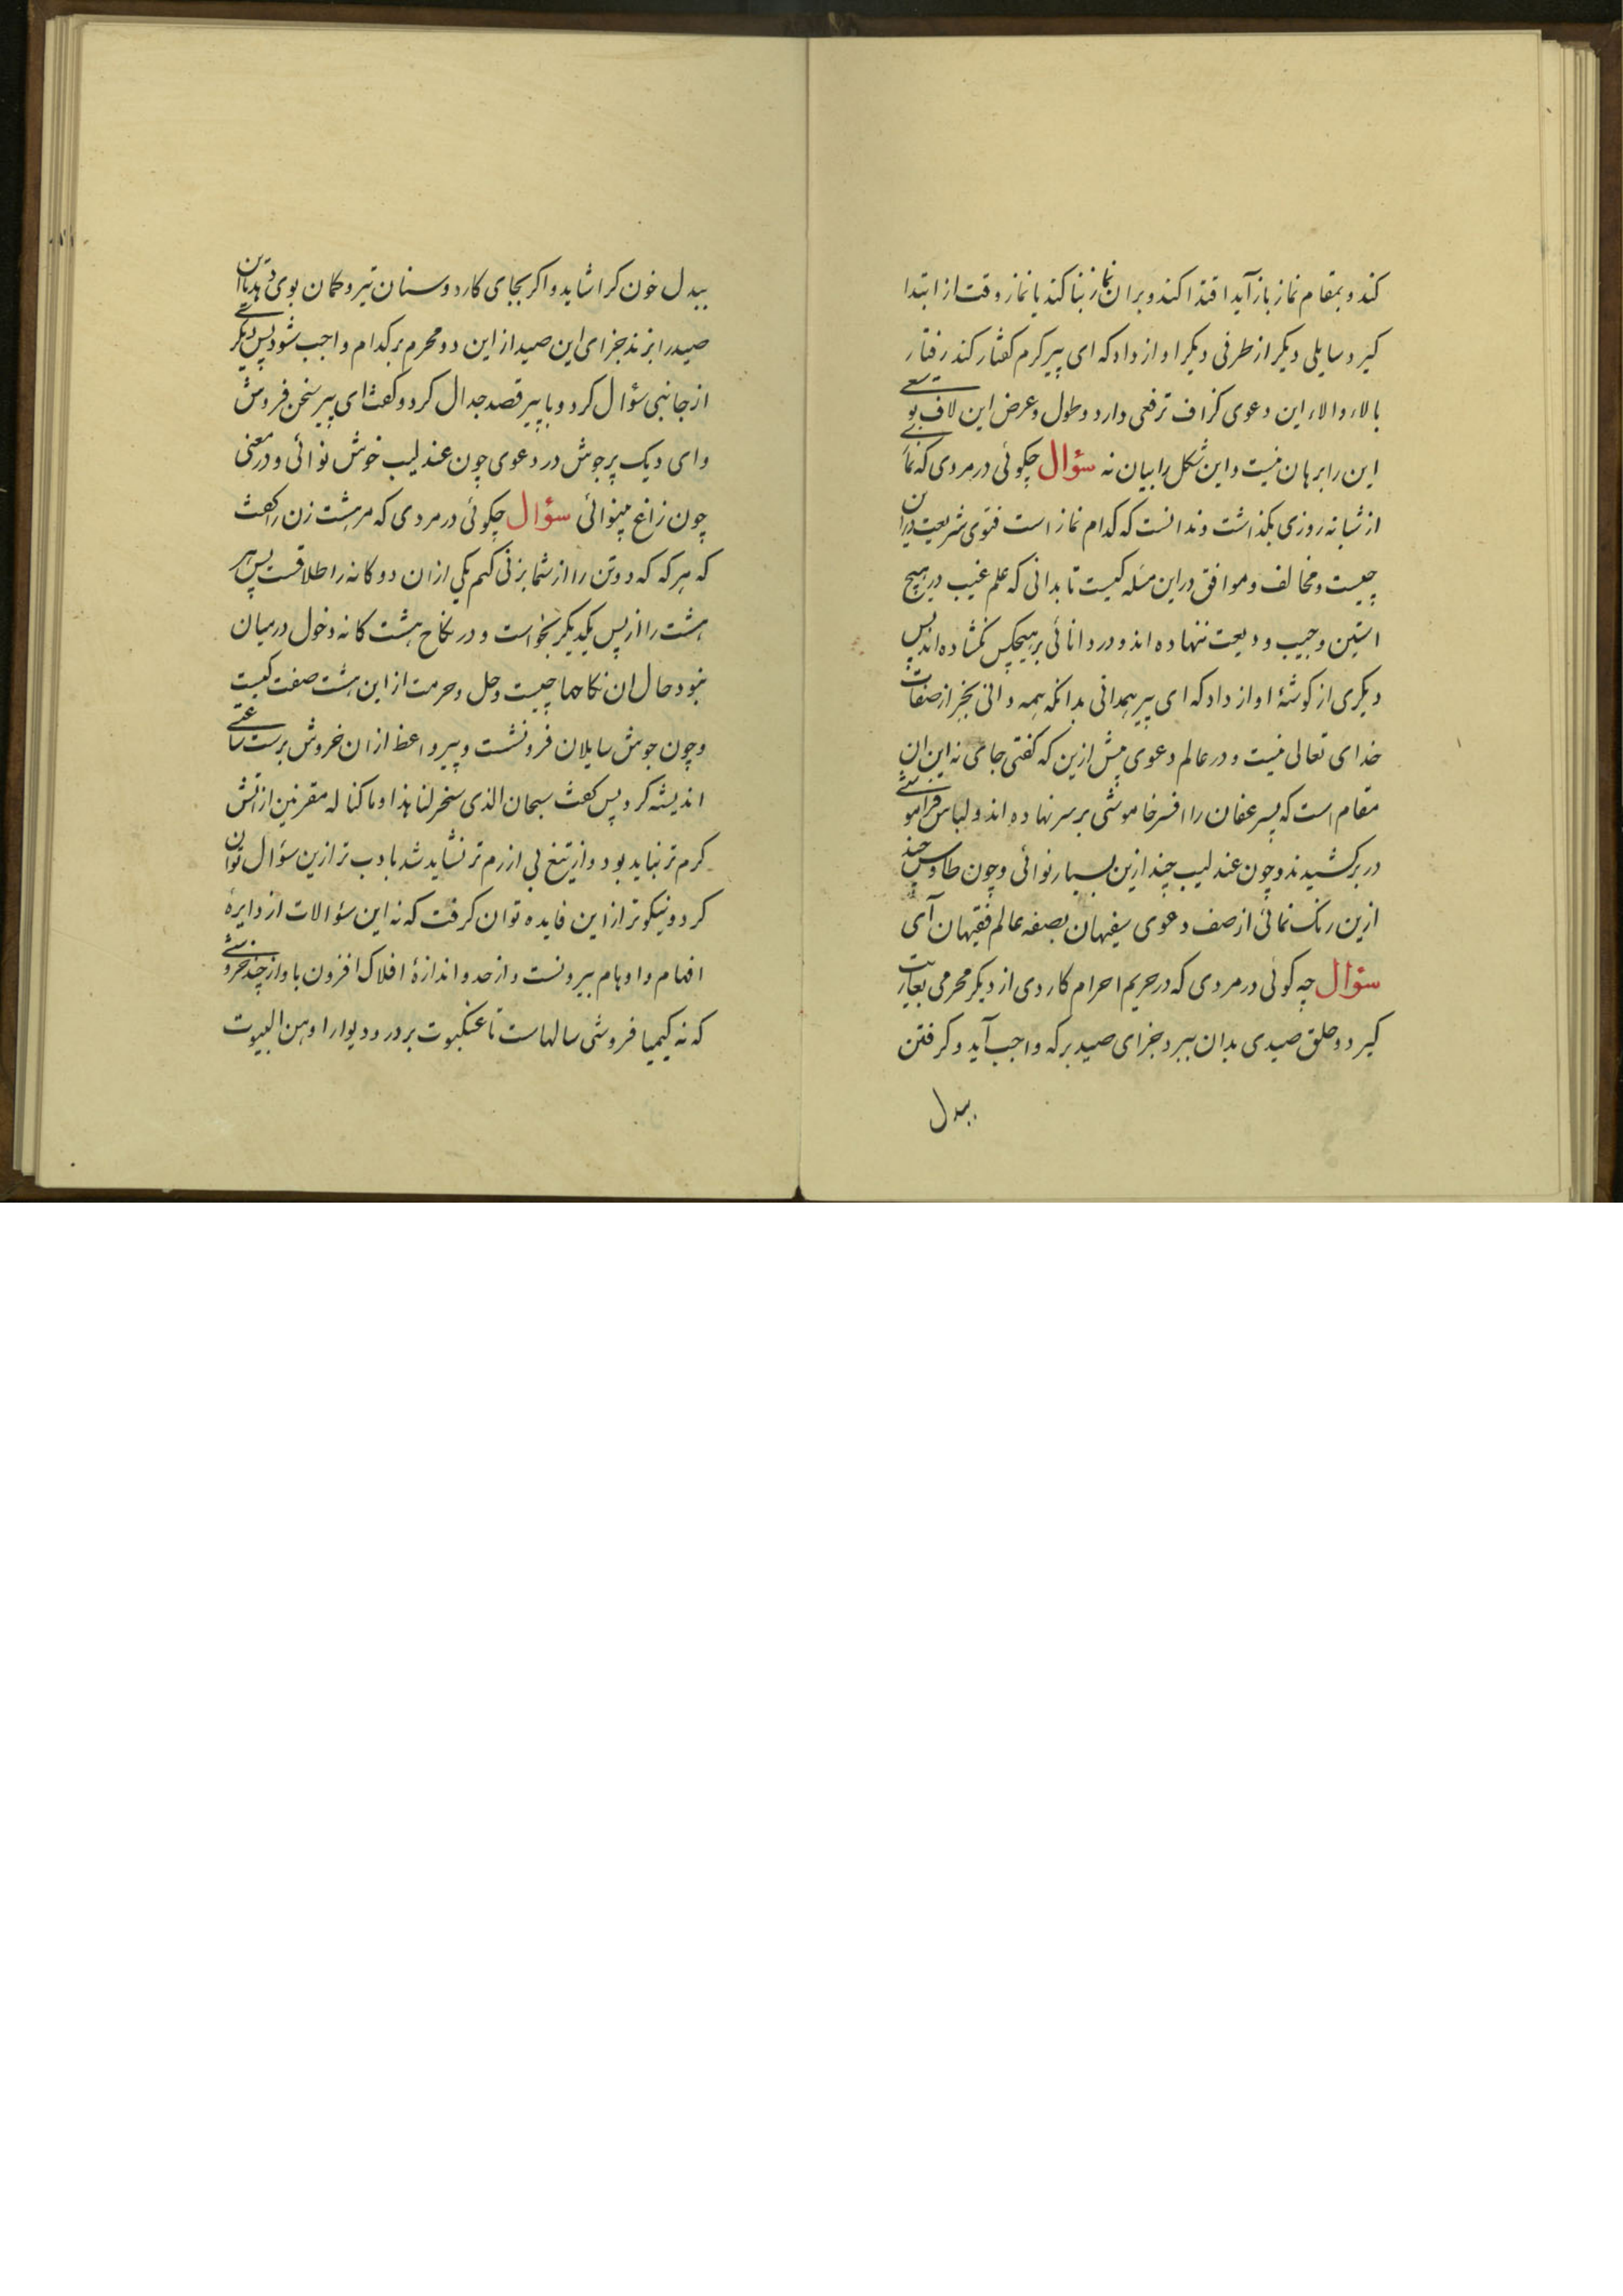 کند و بمقام نماز باز آید اقتدا کند و بران نماز بنا کند یا نماز وقت از ابتدا
کیرد سایلی دیکر از طرفی دیکر اواز داد که ای پیر کرم کفتار کند رفتار
بالاء والاء این دعوی کزاف ترفعی دارد و طول و عرض این لاف توسعی
این را برهان نیست و این شکل را بیان نه سؤال چکوئی در مردی که نمازی
از شبانه روزی بکذاشت و ندانست که کدام نماز است فتوی شریعت دران
چیست و مخالف و موافق دراین مسله کیست تا بدانی که علم غیب در هیچ
استین و جیب ودیعت ننهاده اند و در دانائی بر هیچکس نکشاده اند پس
دیکری از کوشهٔ اواز داد که ای پیر همدانی بدانکه همه دانی بجز از صفات
خدای تعالی نیست و در عالم دعوی بیش ازین که کفتی جای نه این ان
مقام است که پسر عفان را افسر خاموشی بر سر نهاده اند و لباس فراموشی
در برکشیدند و چون عندلیب چند ازین بسیار نوائی و چون طاوس چند
ازین رنک نمائی از صف دعوی سفیهان بصفه عالم فقیهان آی
سؤال چه کوئی در مردی که در حریم احرام کاردی از دیکر محرمی بعاریت
کیرد و حلق صیدی بدان ببرد جزای صید برکه واجب آید و کرفتن
ببدل
ببدل خون کرا شاید و اکر بجای کارد و سنان تیر و کمان بوی دهد تا ان
صید را بزند جزای این صید از این دو محرم بر کدام واجب شود پس دیکری
از جانبی سؤال کرد و با پیر قصد جدال کرد و کفت ای پیر سخن فروش
وای دیک پرجوش در دعوی چون عندلیب خوش نوائی و در معنی
چون زاغ بینوائی سؤال چکوئی در مردی که مر هشت زن را کفت
که هرکه که دو تن را از شما بزنی کنم یکی از ان دوکانه را طلاقست پس هر
هشت را از پس یکدیکر بخواست و در نکاح هشت کانه دخول درمیان
نبود حال ان نکاحها چیست و حل و حرمت از این هشت صفت کیست
و چون جوش سایلان فرو نشست و پیر واعظ از ان خروش برست ساعتی
اندیشه کرد پس کفت سبحان الذی سخر لنا هذا وما کنا له مقرنین از اتش
کرم تر نباید بود و از تیغ بی ازرم تر نشاید شد با دب تر ازین سؤال توان
کرد و نیکوتر از این فایده توان کرفت که نه این سؤالات از دایرهٔ
افهام و اوهام بیرونست و از حد و اندازهٔ افلاک افزون باواز چند خروشی
که نه کیمیا فروشی سالهاست تا عنکبوت بر در و دیوار اوهن البیوت